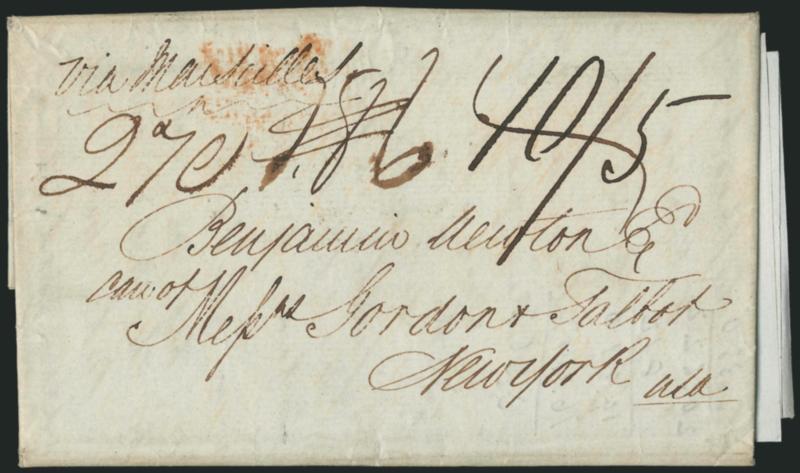 via Marseilles
2/10 1/8 6 10/5
Benjamin Newton Esq
care of
Messrs Gordon & Talbot
New York usa